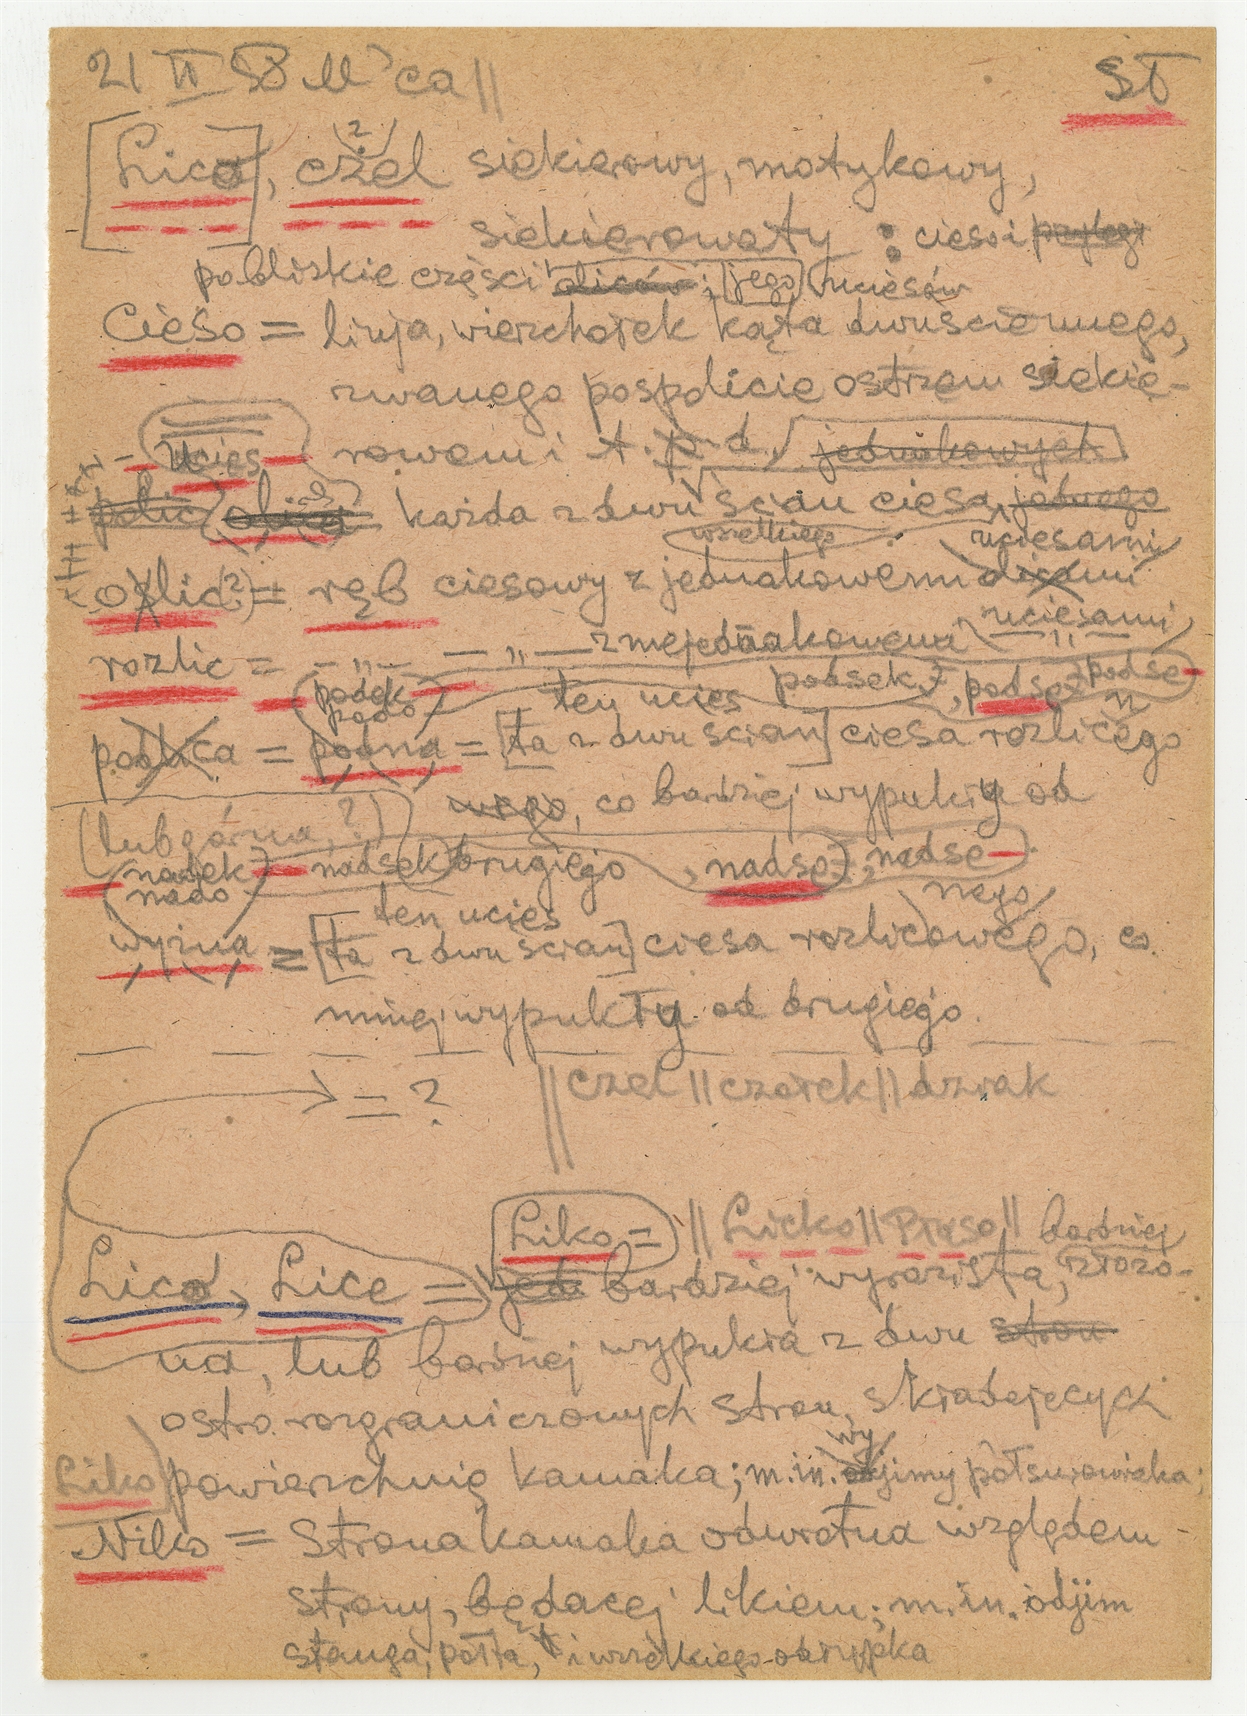 21 VI 58 M'ca ||
ST
[Lico], czel (2) siekierowy, motykowy,
siekierowaty : cieso i przylegi
pobliskie części oliców; [jego] uciesów
Cieso = linja, wierzchołek kąta dwuściennego,
zwanego pospolicie ostrzem siekie-
- ucies - rowem i t. p. d., jednakowych
polic olica każda z dwu ścian ciesa, jednego
wszelkiego uciesami
oblic (2) = ręb ciesowy z jednakowemi olicami
uciesami
rozlic = - „ - - „ - z niejednakowemi - „ -
podek podo ten ucies podsek, podso, podse-
podlica = podna = [ta z dwu ścian] ciesa rozlicego
wego, co bardziej wypukły od
(lub górna, ?)
nadek nado - nadsek drugiego , nadso, nadse-
ten ucies nego
wyżna = [ta z dwu ścian] ciesa rozlicowego, co
mniej wypukły od drugiego.
= ? || czel || czołek || dziak
Liko = || Licko || Praso || bardziej
Lico, Lice = jed bardziej wyrazista, złożo-
na, lub bardziej wypukła z dwu stron
ostro rozgraniczonych stron, składających
wy
Liko powierzchnię kamaka; m.in. odjimy półsurowiaka;
Niko = Strona kamaka odwrotna względem
strony, będącej likiem; m.in. odjim
stanga, półta, i wszelkiego obrypka